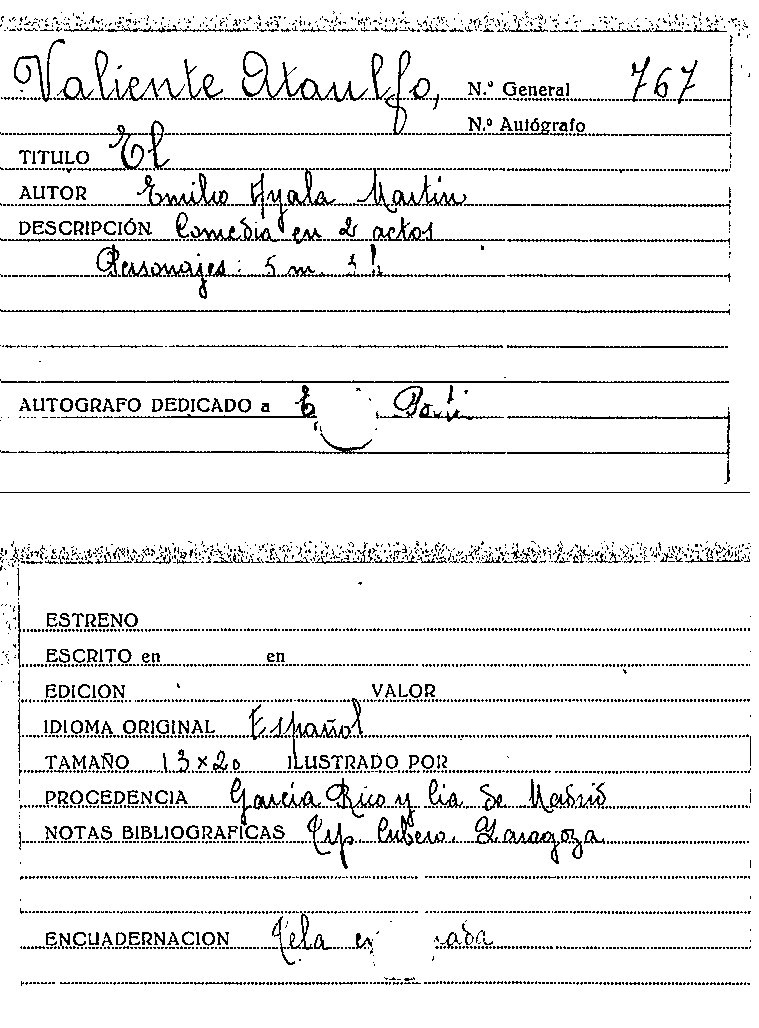 Valiente Ataulfo, N.º General 767
N.º Autógrafo
TITULO El
AUTOR Emilio Ayala Martin
DESCRIPCIÓN Comedia en 2 actos
Personajes: 5 m. 3 h
AUTOGRAFO DEDICADO a
ESTRENO
ESCRITO en en
EDICION VALOR
IDIOMA ORIGINAL Español
TAMAÑO 13×20 ILUSTRADO POR
PROCEDENCIA Garcia Rico y Cia de Madrid
NOTAS BIBLIOGRAFICAS Tip. Cubero. Zaragoza
ENCUADERNACION Tela